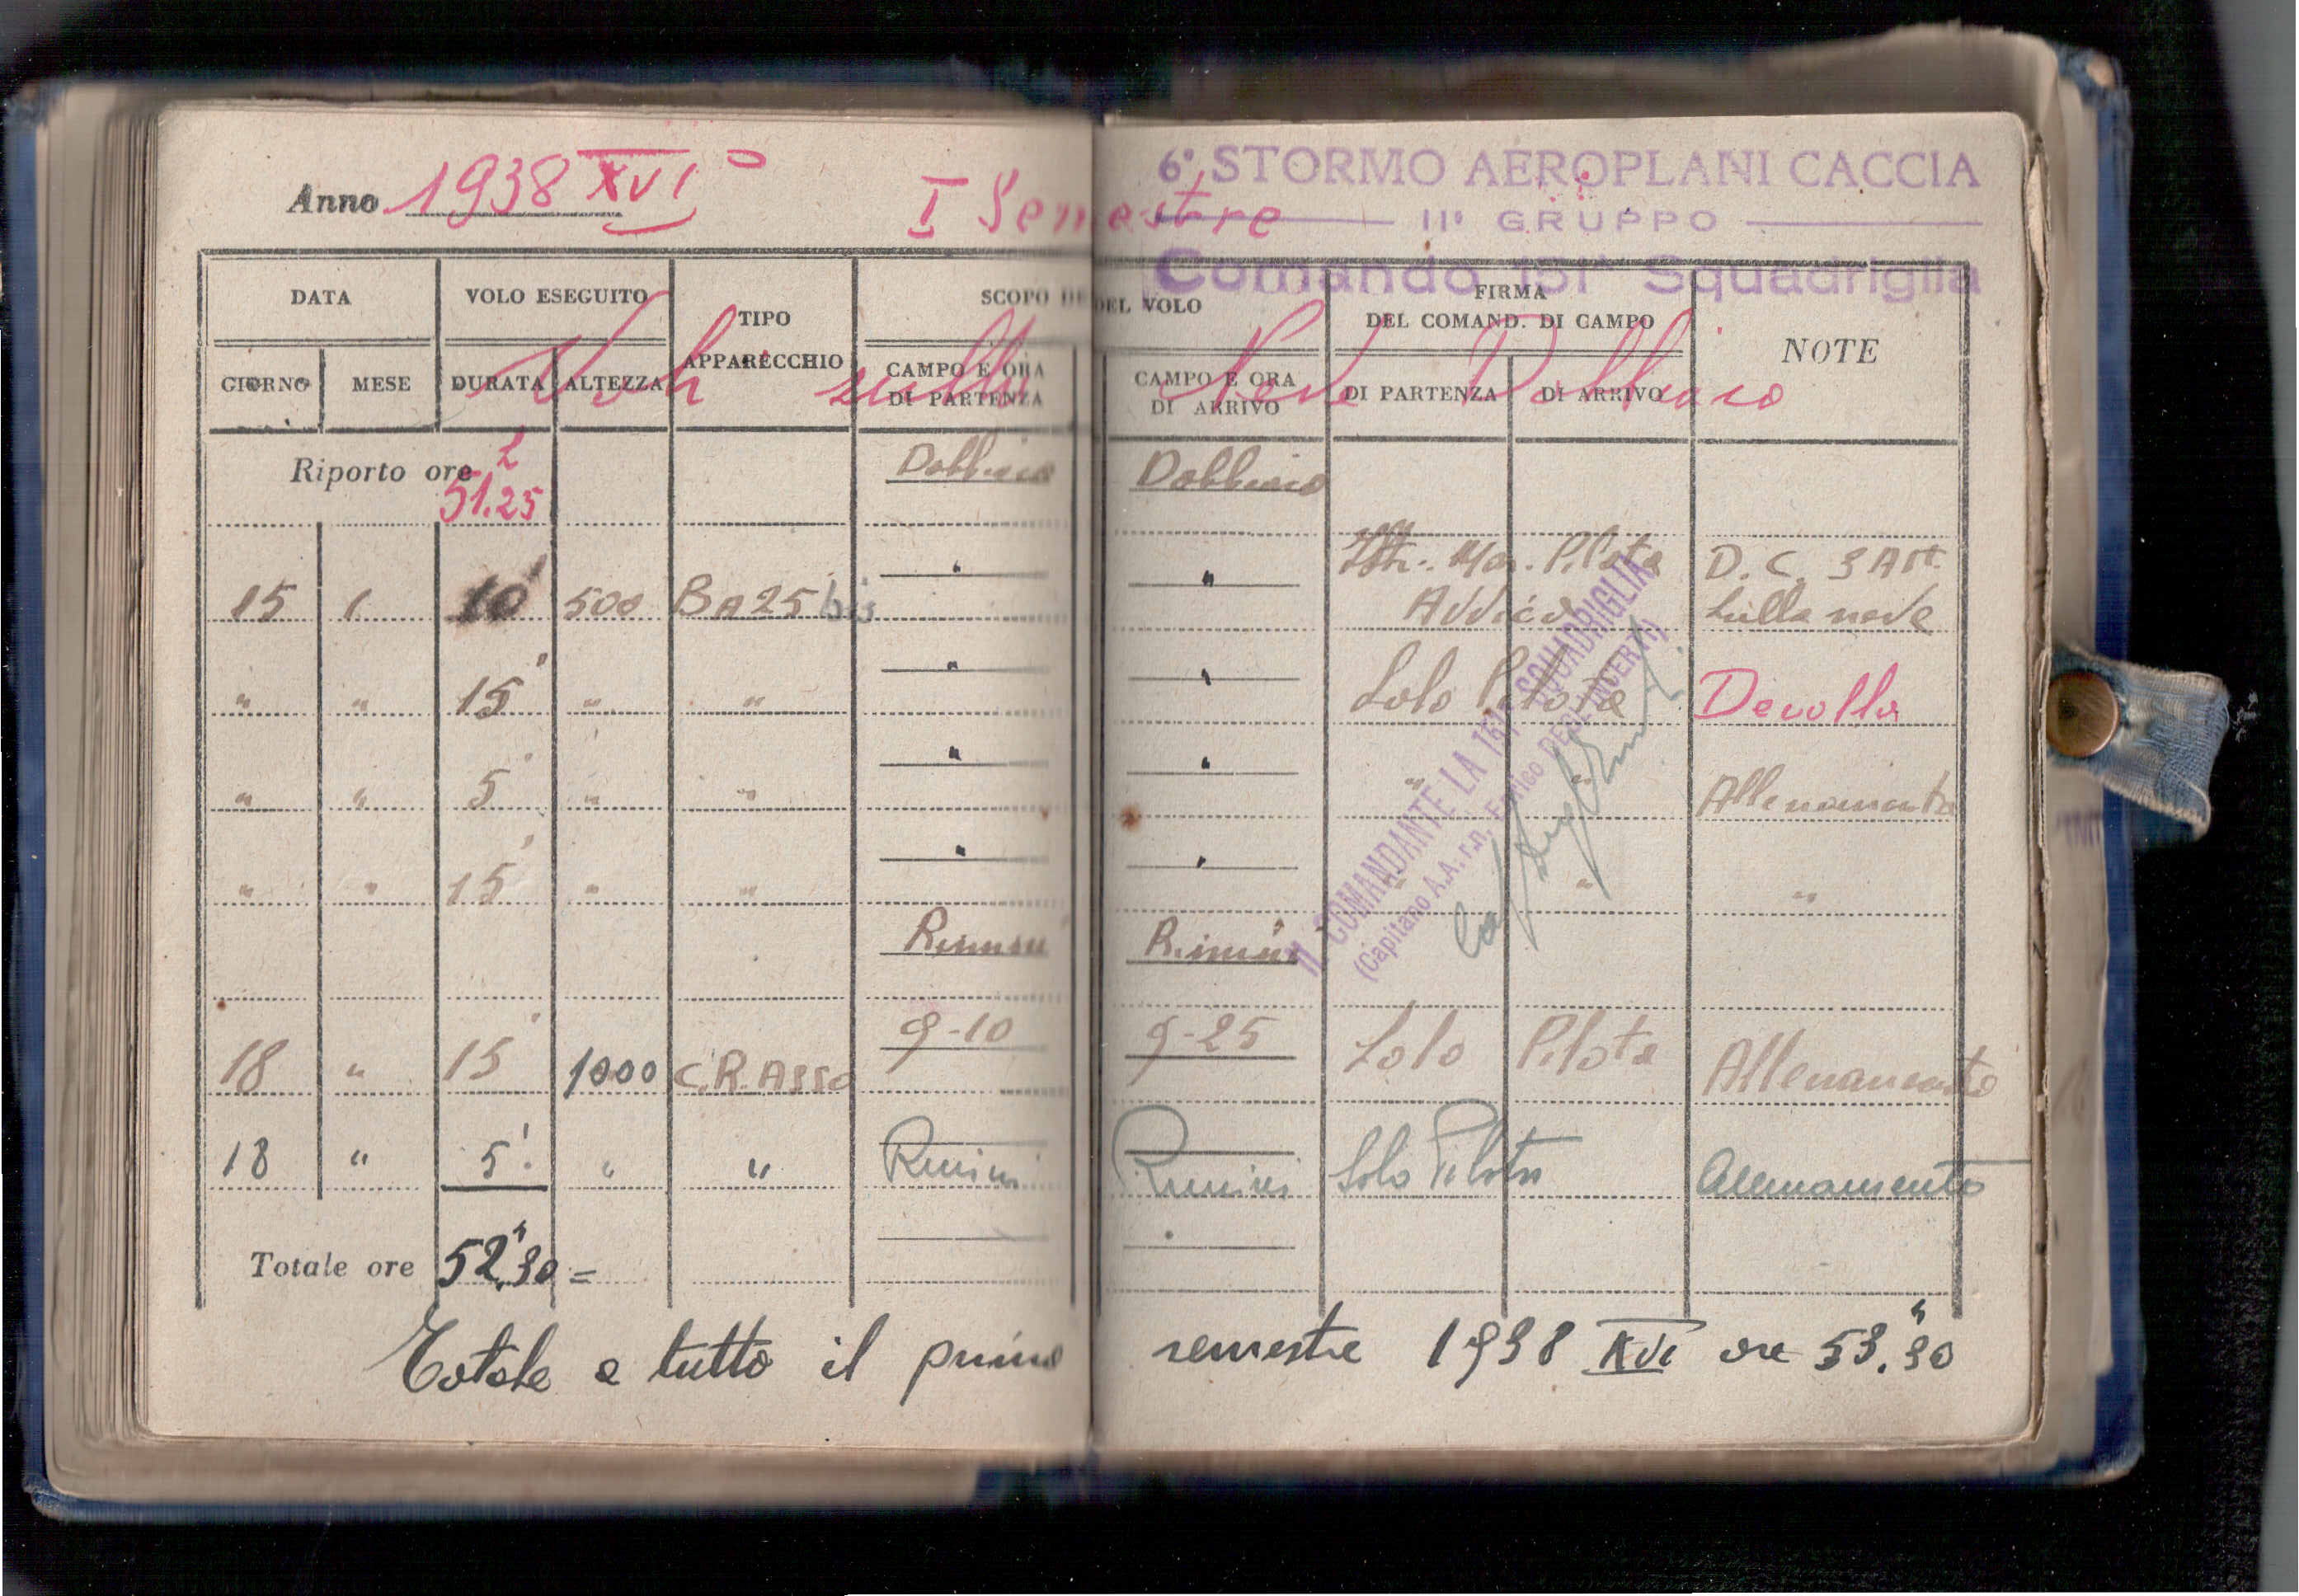 Anno 1938 XVI° I Semestre
6° STORMO AEROPLANI CACCIA
II° GRUPPO
Comando 151ª Squadriglia
DATA VOLO ESEGUITO TIPO APPARECCHIO SCOPO DEL VOLO FIRMA DEL COMAND. DI CAMPO NOTE
GIORNO MESE DURATA ALTEZZA CAMPO E ORA DI PARTENZA CAMPO E ORA DI ARRIVO DI PARTENZA DI ARRIVO
Voli sulla Neve Dobbiaco
Riporto ore 51.25 Dobbiaco Dobbiaco
15 1 10' 500 BA25 bis " " Pilota D. C. 3 Att. sulla neve
" " 15' " " " " Solo Pilota Decollo
" " 5' " " " " " " Allenamento
" " 15' " " " " " " "
Rimini Rimini
18 " 15' 1000 C.R. Asso 9-10 9-25 Solo Pilota Allenamento
18 " 5' " " Rimini Rimini Solo Pilota Allenamento
IL COMANDANTE LA 151ª SQUADRIGLIA
(Capitano A.A. r.n. Enrico DEGL'INCERTI)
Totale ore 52.30 =
Totale a tutto il primo semestre 1938 XVI ore 53.30